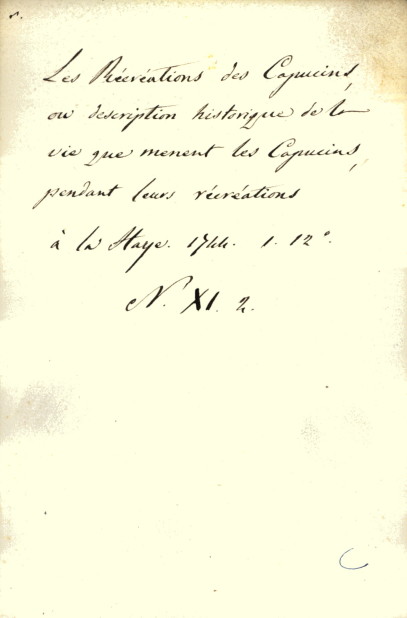 Les Récréations des Capucins,
ou description historique de la
vie que menent les Capucins,
pendant leurs récréations
à la Haye. 1744. 1. 12°.
N. XI. 2.